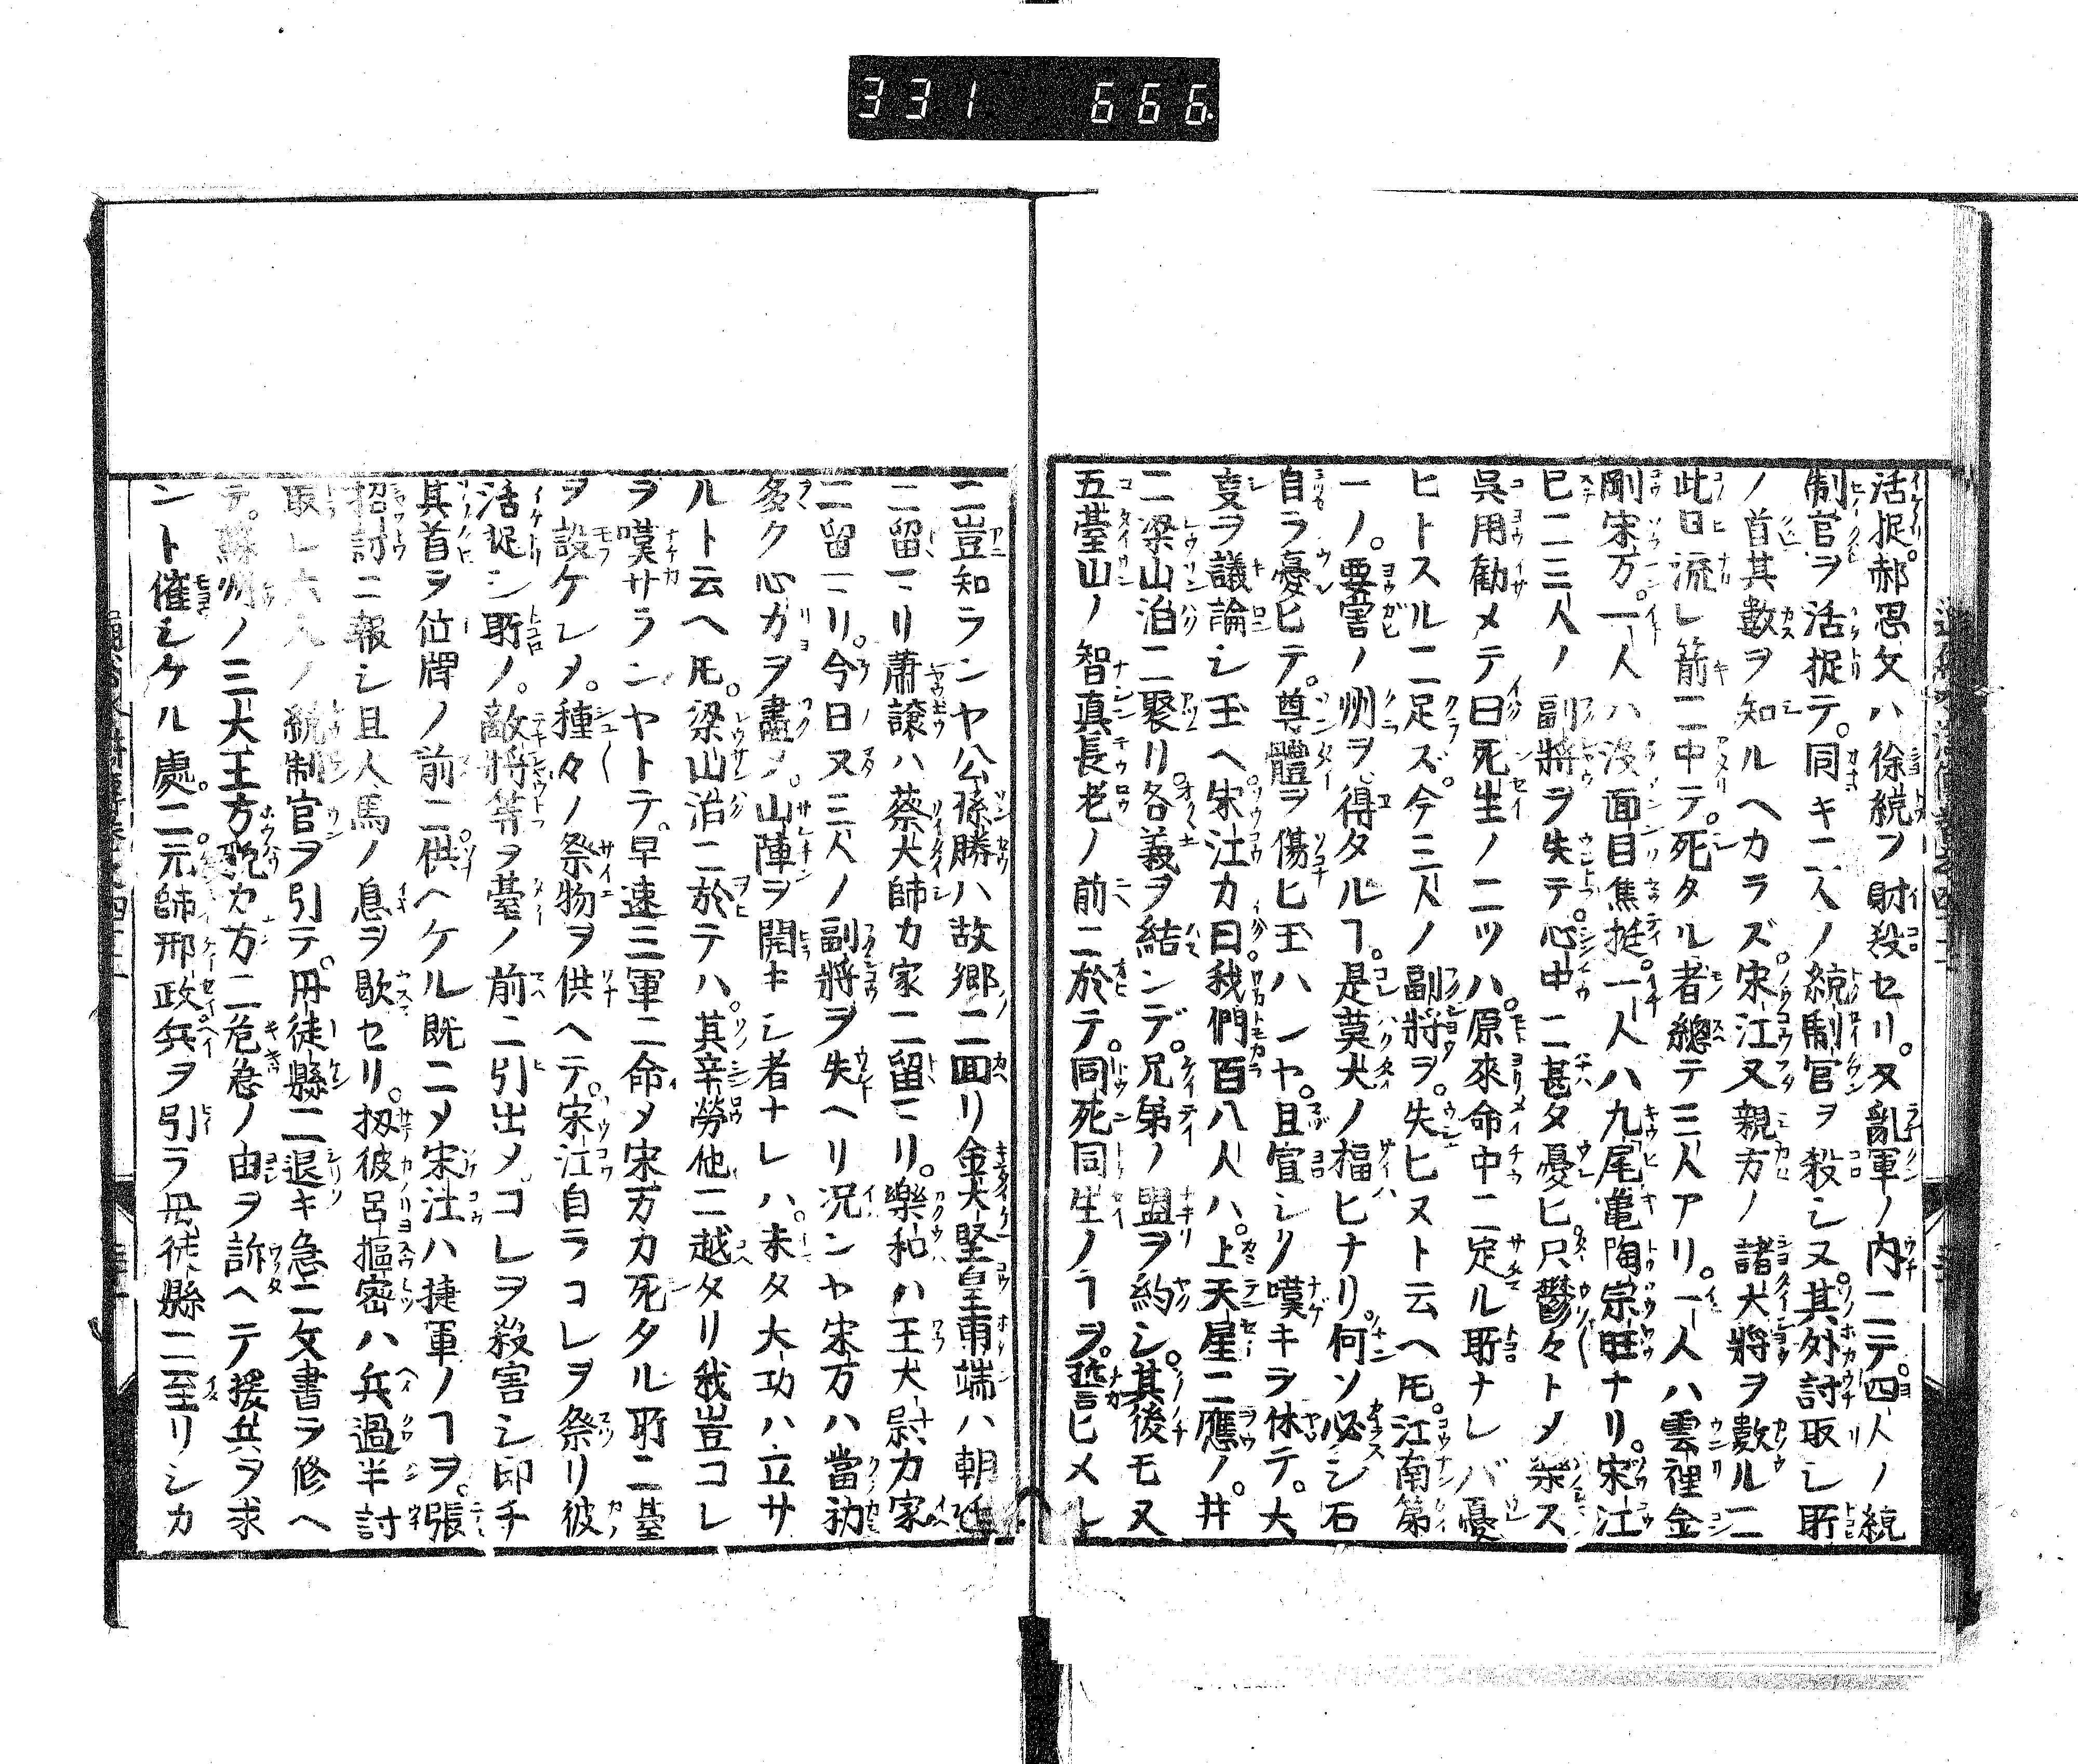 331 666
活捉。郝思文ハ徐統ヲ討殺セリ。又亂軍ノ内ニテ。四人ノ統
制官ヲ活捉テ。同キニ人ノ統制官ヲ殺シ又。其外討取シ所
ノ首其數ヲ知ルヘカラズ。宋江又親方ノ諸大將ヲ數ルニ
此日流レ箭ニ中テ。死タル者總テ三人アリ。一人ハ雲裡金
剛宋万。一人ハ沒面目焦挺。一人ハ九尾亀陶宗旺ナリ。宋江
已ニ三人ノ副將ヲ失テ。心中ニ甚タ憂ヒ。只鬱々トメ楽ス
呉用勸メテ曰死生ノ二ツハ。原來命中ニ定ル所ナレバ憂
ヒトスルニ足ズ。今三人ノ副將ヲ。失ヒヌト云ヘ𪜈。江南第
一ノ。要害ノ州ヲ得タルヿ。是莫大ノ福ヒナリ。何ソ必シ石
自ラ憂ヒテ。尊體ヲ傷ヒ玉ハンヤ。且宜シク嘆キヲ休テ。大
叓ヲ議論シ玉ヘ。宋江カ曰。我們百八人ハ。上天星ニ應ノ。并
ニ梁山泊ニ聚リ。各義ヲ結ンデ。兄弟ノ盟ヲ約シ。其後モ又
五臺山ノ智真長老ノ前ニ於テ。同死同生ノヿヲ。誓ヒメレ𪜈
ニ豈知ランヤ公孫勝ハ故郷ニ囬リ金大堅皇甫端ハ朝廷
ニ留マリ蕭讓ハ蔡大師カ家ニ留マリ。樂和ハ王大尉カ家
ニ留マリ。今日又三人ノ副將ヲ失ヘリ况ンヤ宋万ハ當初
多ク心カヲ盡メ。山陣ヲ開キシ者ナレハ。未タ大功ハ立サ
ルト云ヘ𪜈。梁山泊ニ於テハ。其辛勞他ニ越タリ我豈コレ
ヲ嘆サランヤトテ。早速三軍ニ命メ宋万カ死タル所ニ臺
ヲ設ケシメ。種々ノ祭物ヲ供ヘテ。宋江自ラコレヲ祭リ彼
活捉シ所ノ。敵將等ヲ臺ノ前ニ引出メ。コレヲ殺害シ即チ
其首ヲ位牌ノ前ニ供ヘケル既ニメ宋江ハ捷軍ノヿヲ。張
招討ニ報シ且人馬ノ息ヲ歇セリ。扨彼呂樞密ハ兵過半討
取レ六人ノ統制官ヲ引テ。丹徒縣ニ退キ急ニ文書ヲ修ヘ
テ。蘇州ノ三大王方貌カ方ニ危急ノ由ヲ訴ヘテ援兵ヲ求
ント催シケル處。ニ元帥邢政兵ヲ引ラ丹徒縣ニ至リシカ